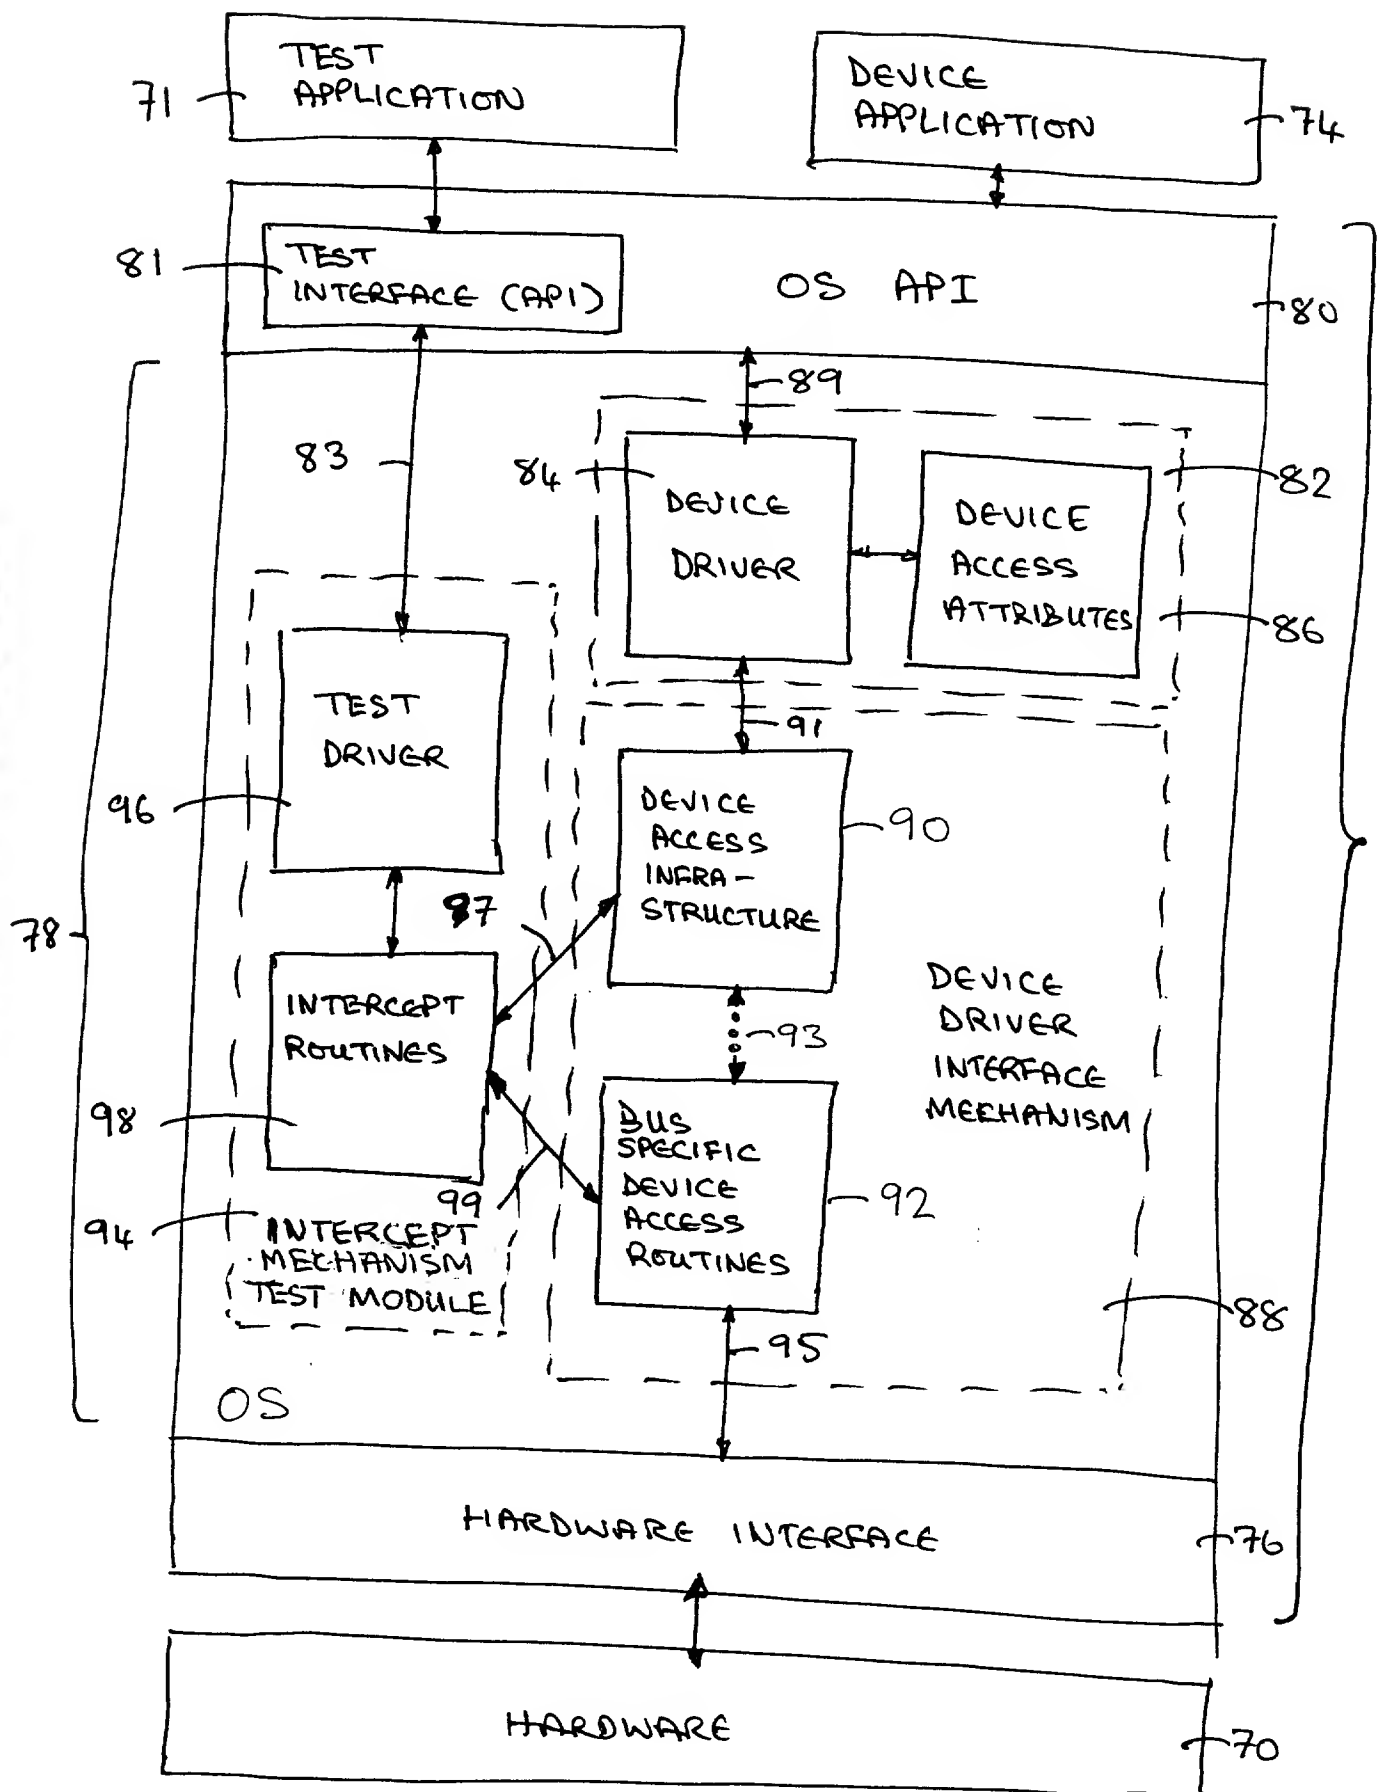 TEST
APPLICATION
71
DEVICE
APPLICATION
74
81
TEST
INTERFACE (API)
OS API
80
89
83
84
DEVICE
DRIVER
82
DEVICE
ACCESS
ATTRIBUTES
86
TEST
DRIVER
91
96
DEVICE
ACCESS
INFRA-
STRUCTURE
90
97
78
INTERCEPT
ROUTINES
93
DEVICE
DRIVER
INTERFACE
MECHANISM
98
BUS
SPECIFIC
DEVICE
ACCESS
ROUTINES
92
99
94
INTERCEPT
MECHANISM
TEST MODULE
88
95
OS
HARDWARE INTERFACE
76
HARDWARE
70